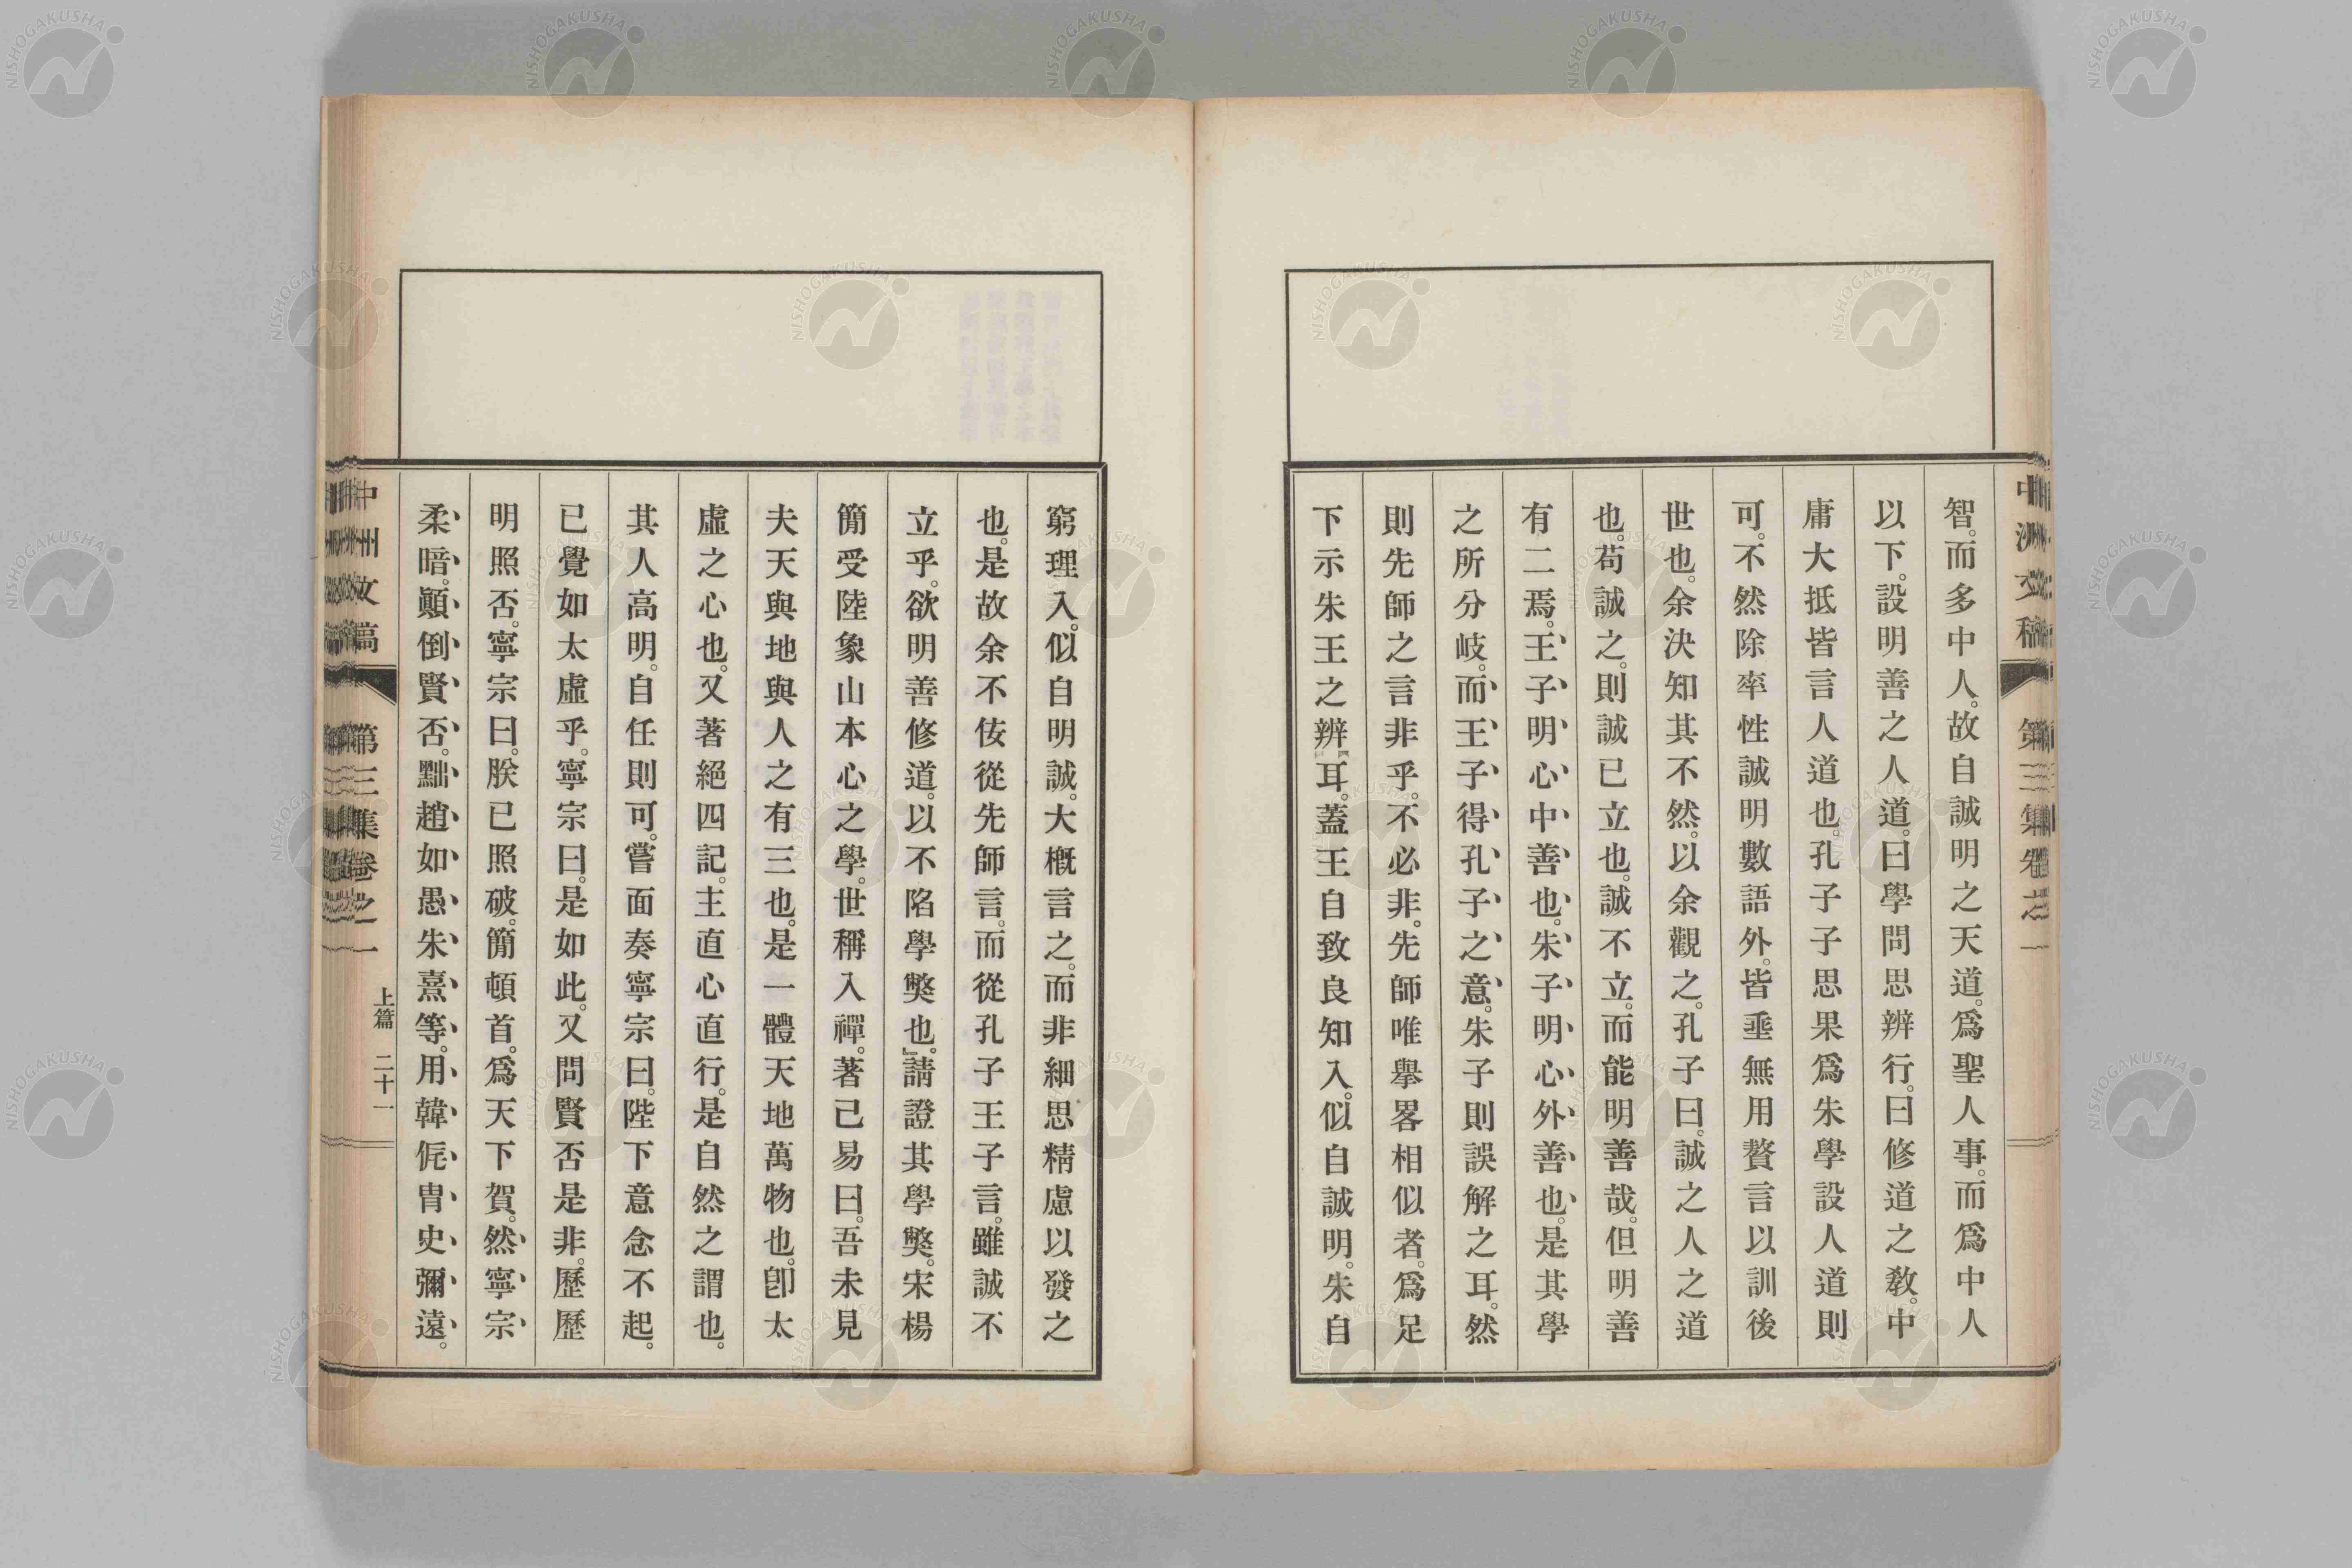 智。而多中人。故自誠明之天道。爲聖人事。而爲中人
以下。設明善之人道。曰學問思辨行。曰修道之教。中
庸大抵皆言人道也。孔子子思果爲朱學設人道則
可。不然除率性誠明數語外。皆埀無用贅言以訓後
世也。余決知其不然。以余觀之。孔子曰。誠之人之道
也。苟誠之。則誠已立也。誠不立。而能明善哉。但明善
有二焉。王子明心中善也。朱子明心外善也。是其學
之所分岐。而王子得孔子之意。朱子則誤解之耳。然
則先師之言非乎。不必非。先師唯擧畧相似者。爲足
下示朱王之辨耳。蓋王自致良知入。似自誠明。朱自
窮理入。似自明誠。大概言之。而非細思精慮以發之
也。是故余不佞從先師言。而從孔子王子言。雖誠不
立乎。欲明善修道。以不陷學獘也。』請證其學獘。宋楊
簡受陸象山本心之學。世稱入禪。著己易曰。吾未見
夫天與地與人之有三也。是一體天地萬物也。卽太
虛之心也。又著絕四記。主直心直行。是自然之謂也。
其人高明。自任則可。嘗面奏寧宗曰。陛下意念不起。
已覺如太虛乎。寧宗曰。是如此。又問。賢否是非。歷歷
明照否。寧宗曰。朕已照破。簡頓首。爲天下賀。然寧宗
柔暗。顚倒賢否。黜趙如愚朱熹等。用韓侂冑史彌遠。
中洲文稿
第三集卷之一
上篇 二十一